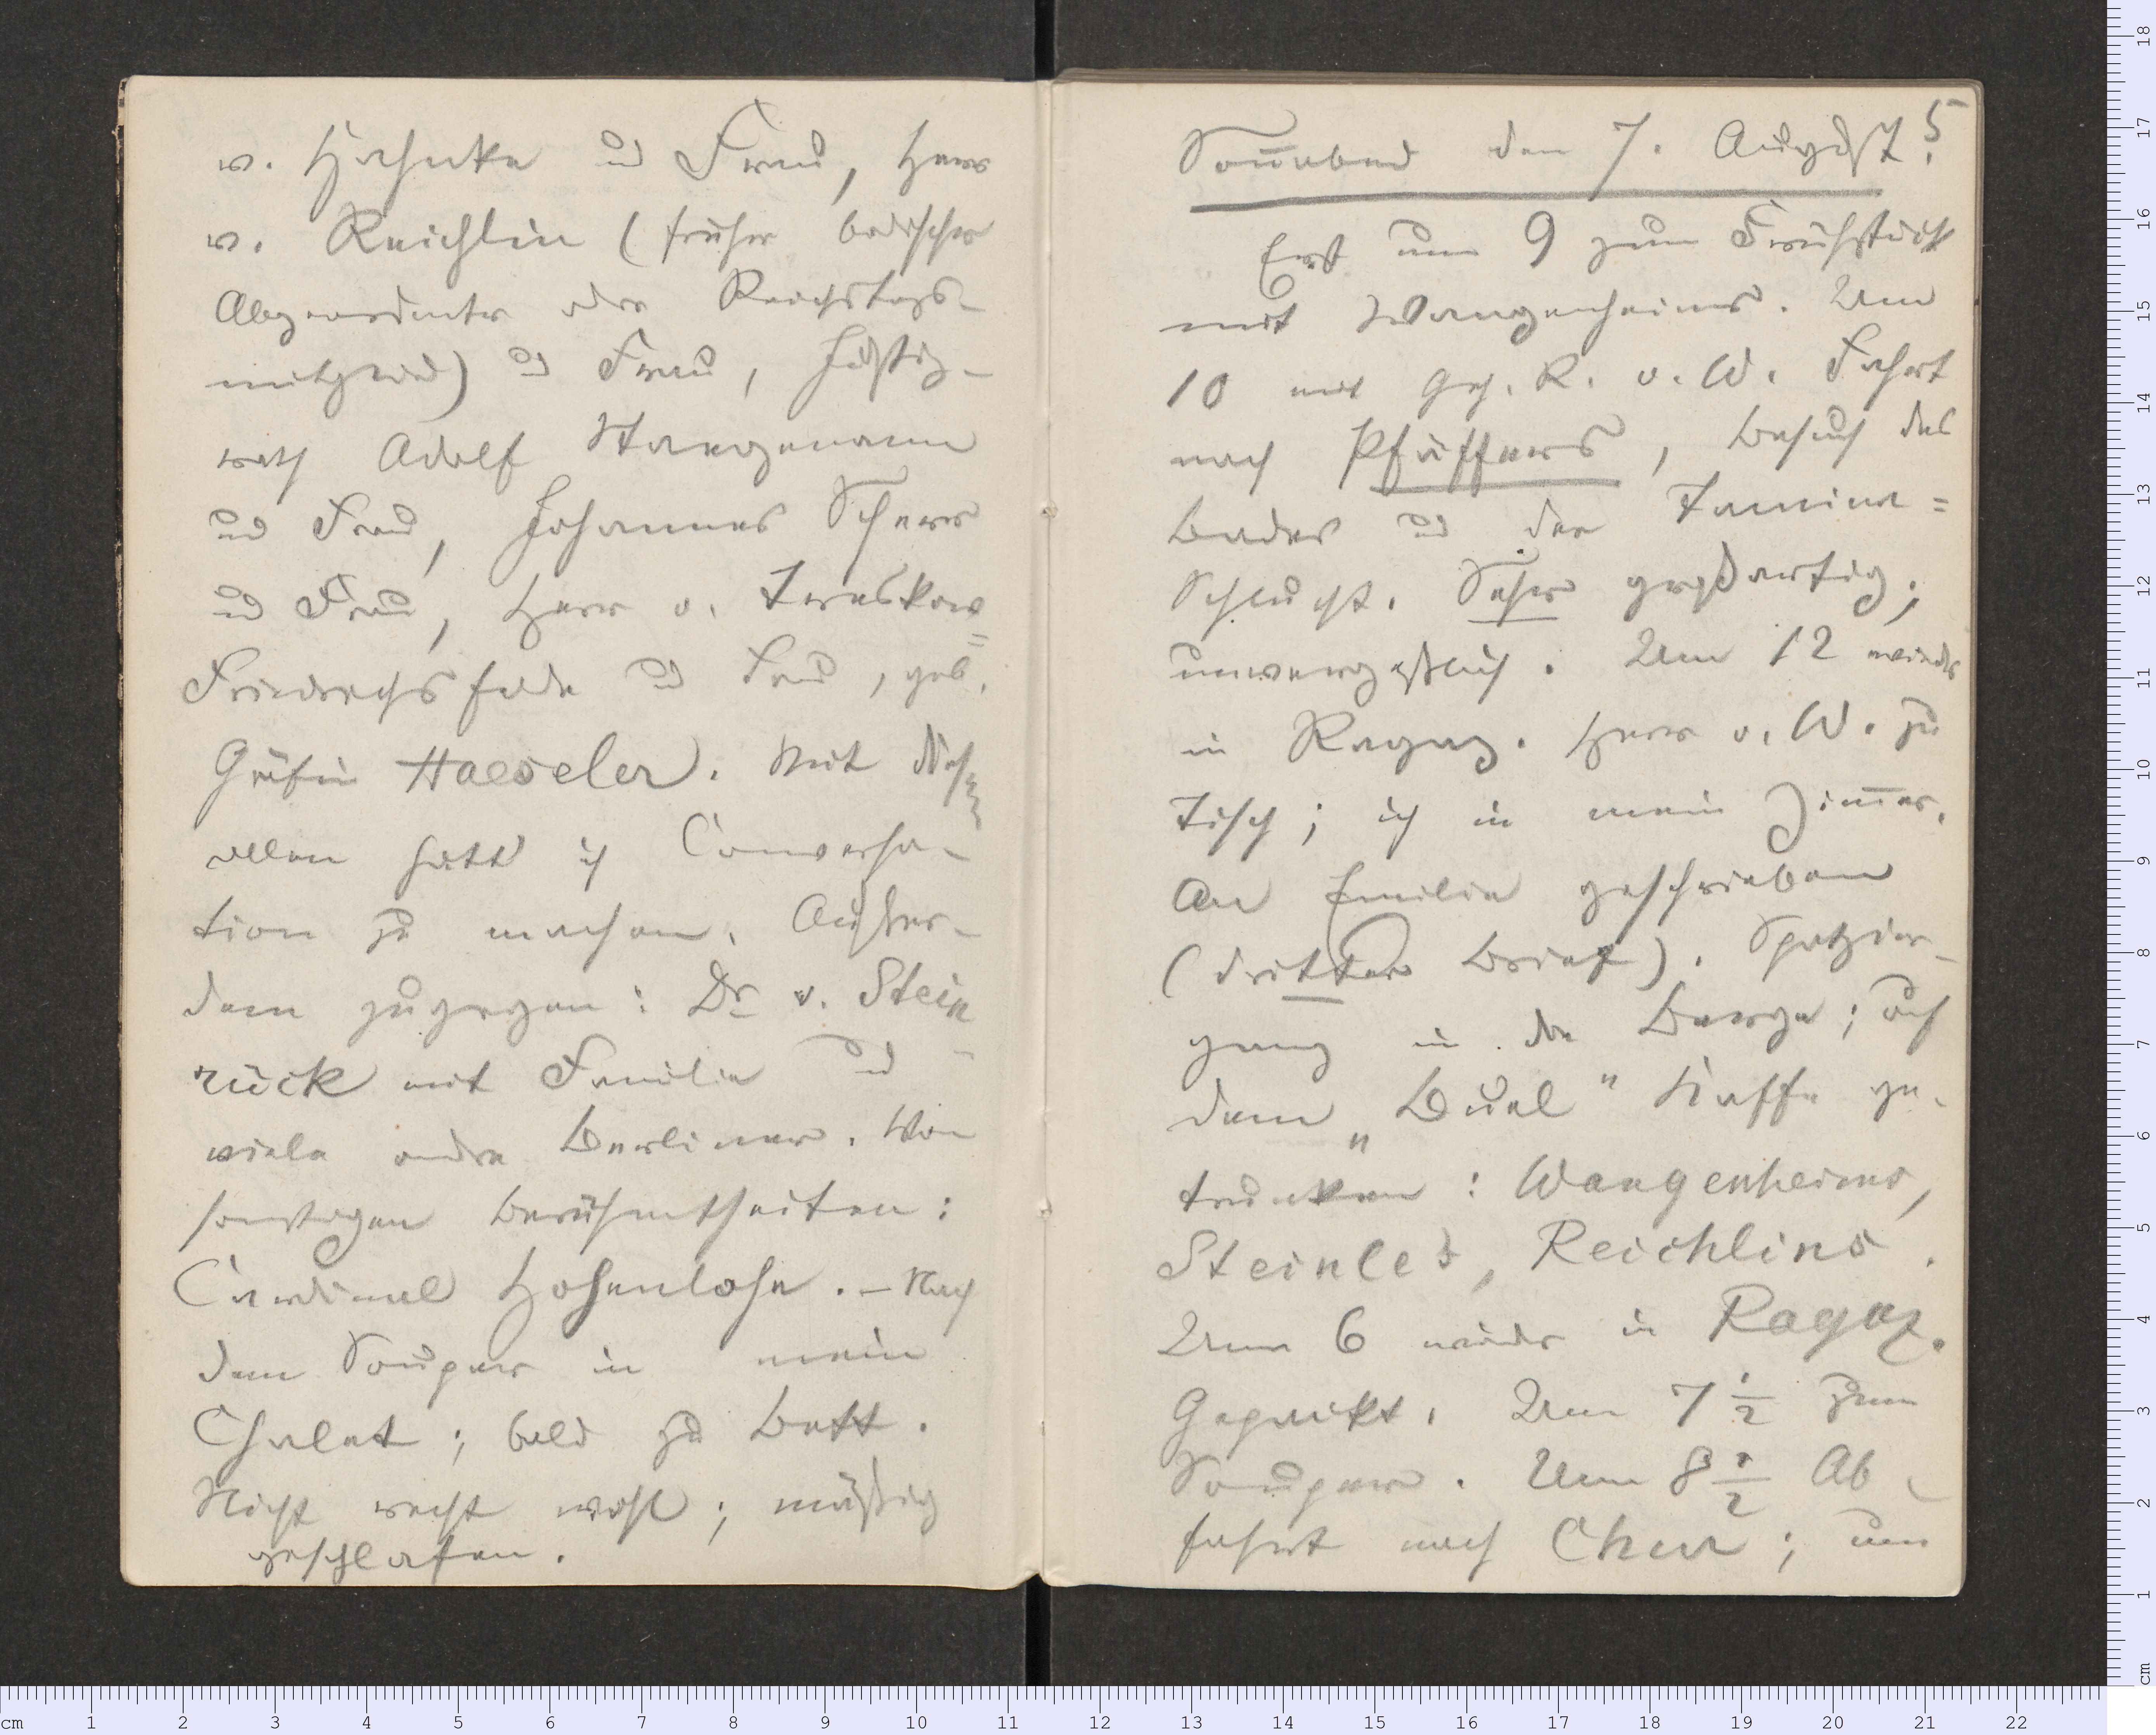 v. Hahnke und Frau, Herr
v. Reichlin (früher badischer
Abgeordneter oder Reichstags-
mitglied) und Frau, Justiz-
rath Adolf Stangemann
und Frau, Johannes Scherr
und Frau, Herr v. Treskow=
Friedrichsfelde und Frau, geb.
Gräfin Haeseler. Mit diesen
allen hatte ich Conversa-
tion zu machen. Außer-
dem zugegen: Dr v. Stein-
rück mit Familie und
viele andre Berliner. Von
sonstigen Berühmtheiten:
Cardinal Hohenlohe. – Nach
dem Souper in mein
Chalet; bald zu Bett.
Nicht recht wohl; mäßig
geschlafen.
5
Sonnabend den 7. August.
Erst um 9 zum Frühstück
mit Wangenheims. Um
10 mit Geh. R. v. W. Fahrt
nach Pfäffers, Besuch des
Bades und der Tamina=
Schlucht. Sehr großartig;
unvergeßlich. Um 12 wieder
in Ragaz. Herr v. W. zu
Tisch; ich in mein Zimmer.
An Emilie geschrieben
(dritter Brief). Spatzier-
gang in die Berge; auf
dem „Buel" Kaffe ge-
trunken: Wangenheims,
Steinles, Reichlins.
Um 6 wieder in Ragaz.
Gepackt. Um 7 1/2 zum
Souper. Um 8 1/2 Ab-
fahrt nach Chur; um